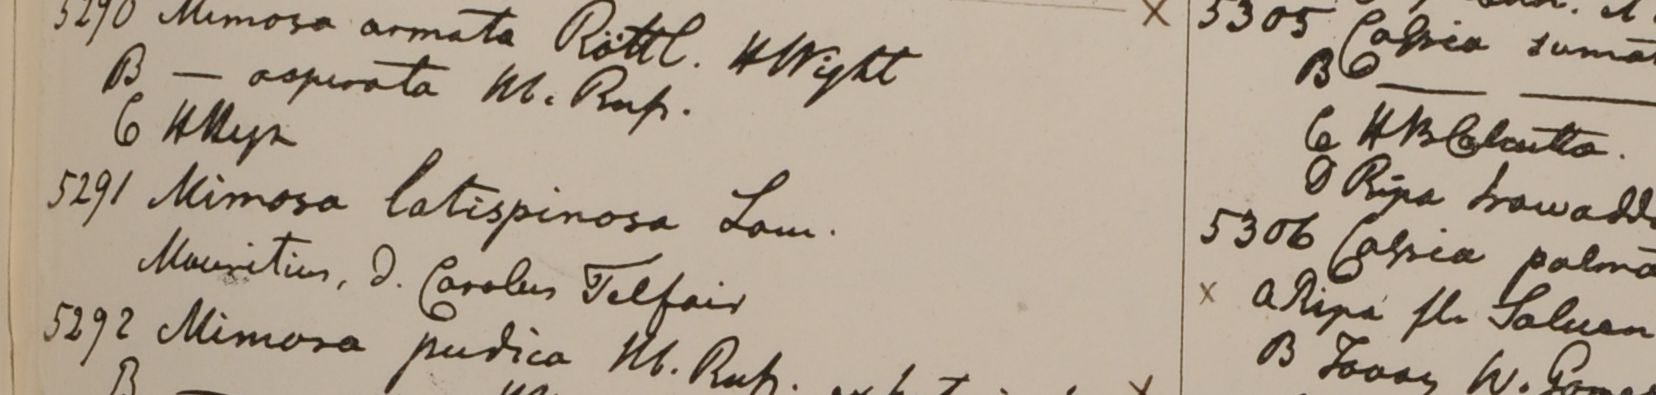 5290 Mimosa armata Röttl. HWight
B — asperata Hb. Rusp.
C HHeyn
5291 Mimosa latispinosa Lam.
Mauritius, D. Carolus Telfair
5292 Mimosa pudica Hb. Rusp.
B —
x
x
5305 Cassia sumat
B —— ——
C HBCalcutta.
D Ripa Irawadd
5306 Cassia palma
x a Ripa fl. Saluen
B Tavoy W. Gomez